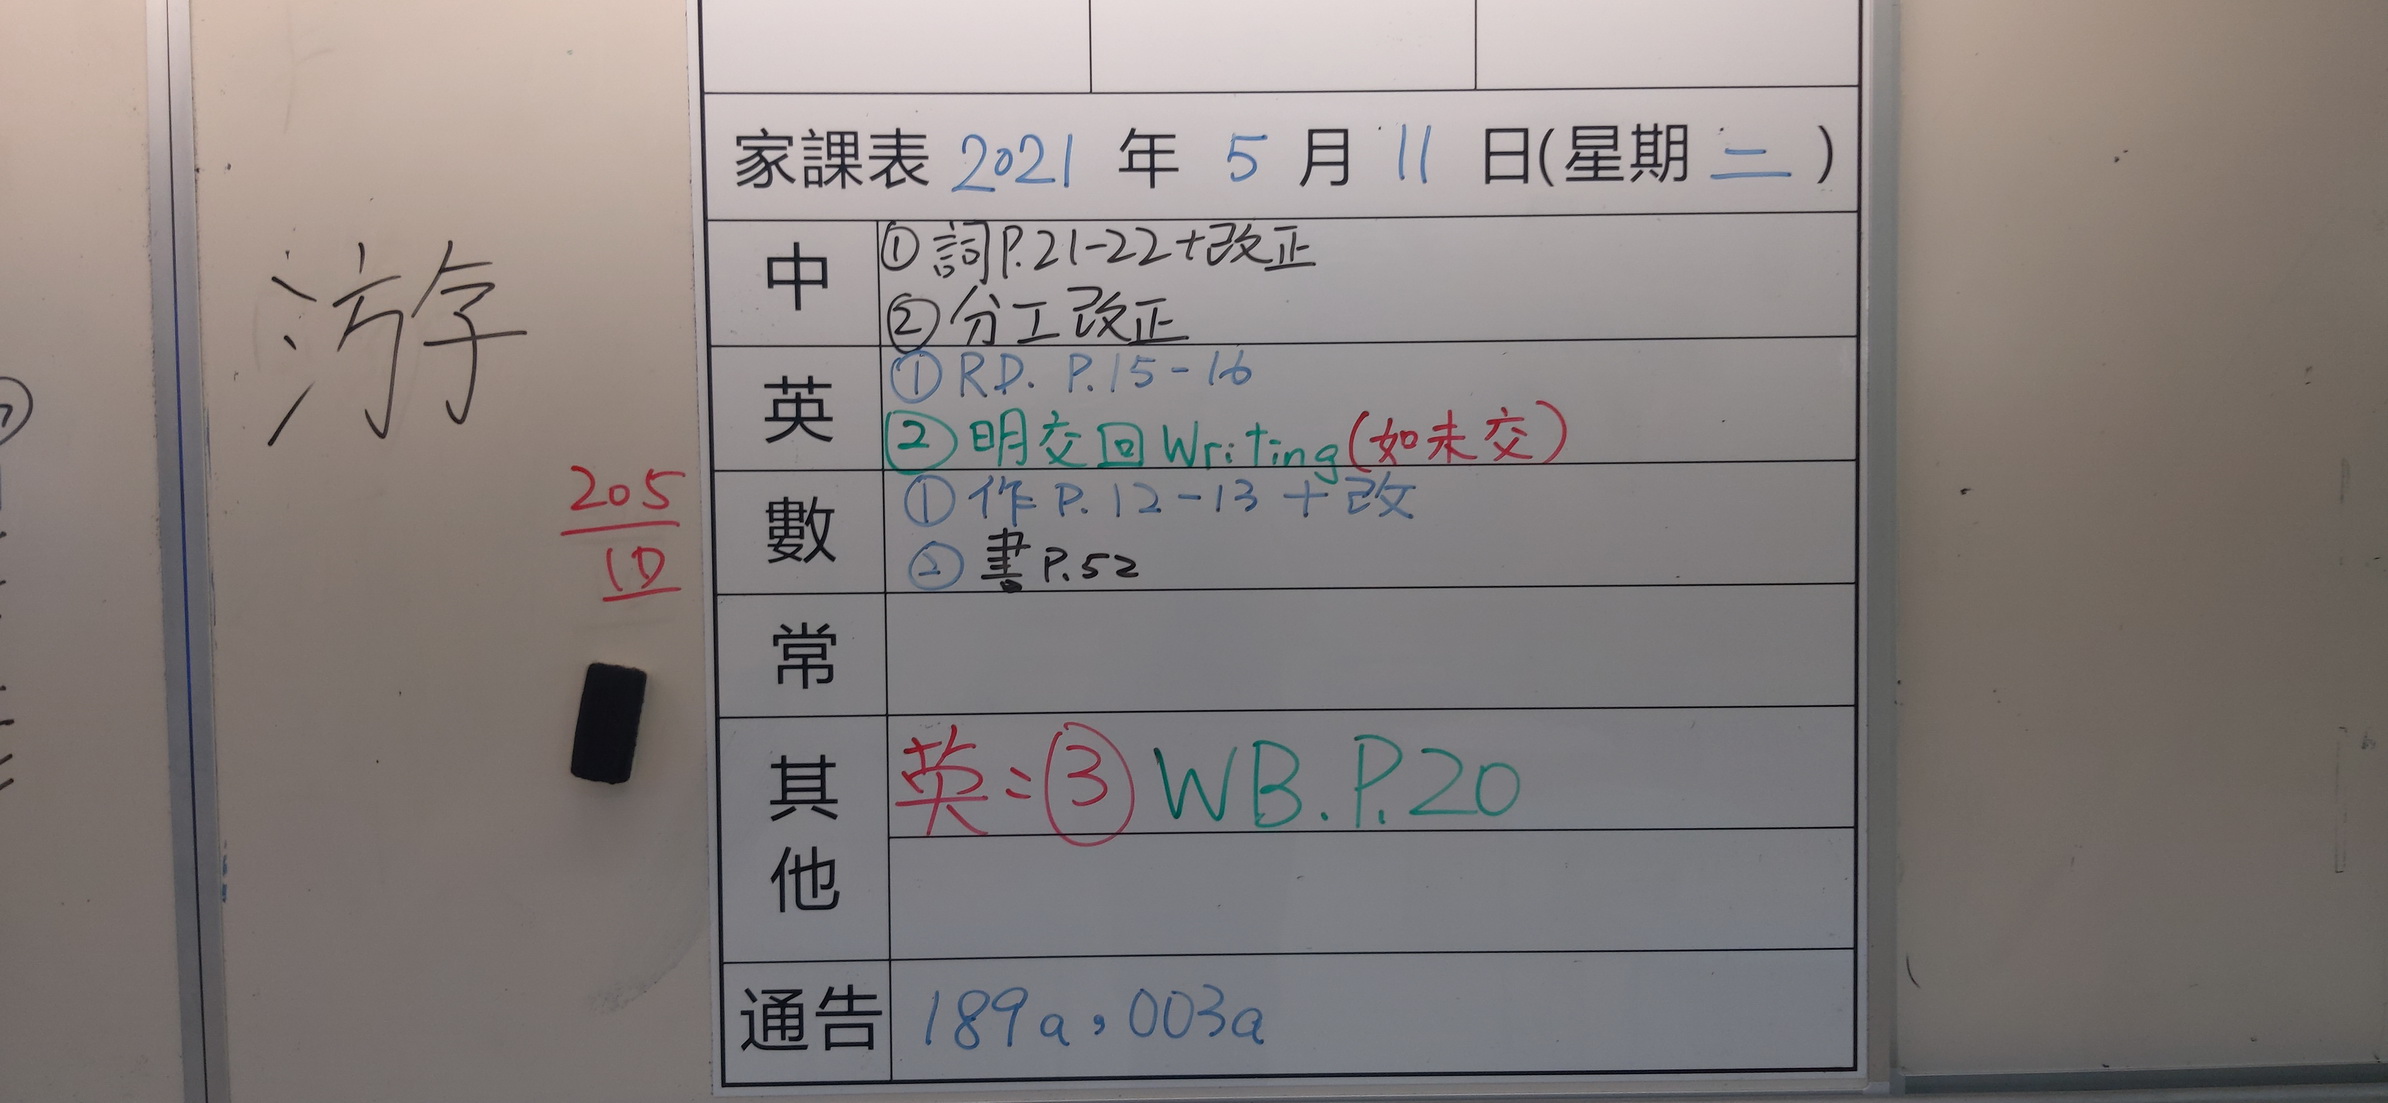 游
205
10
家課表 2021 年 5 月 11 日(星期 二 )
中
① 詞P.21-22+改正
② 分工改正
英
① RD. P.15-16
② 明交回Writing(如未交)
數
① 作P.12-13+改
② 書P.52
常
其他
英:③ WB.P.20
通告
189a,003a